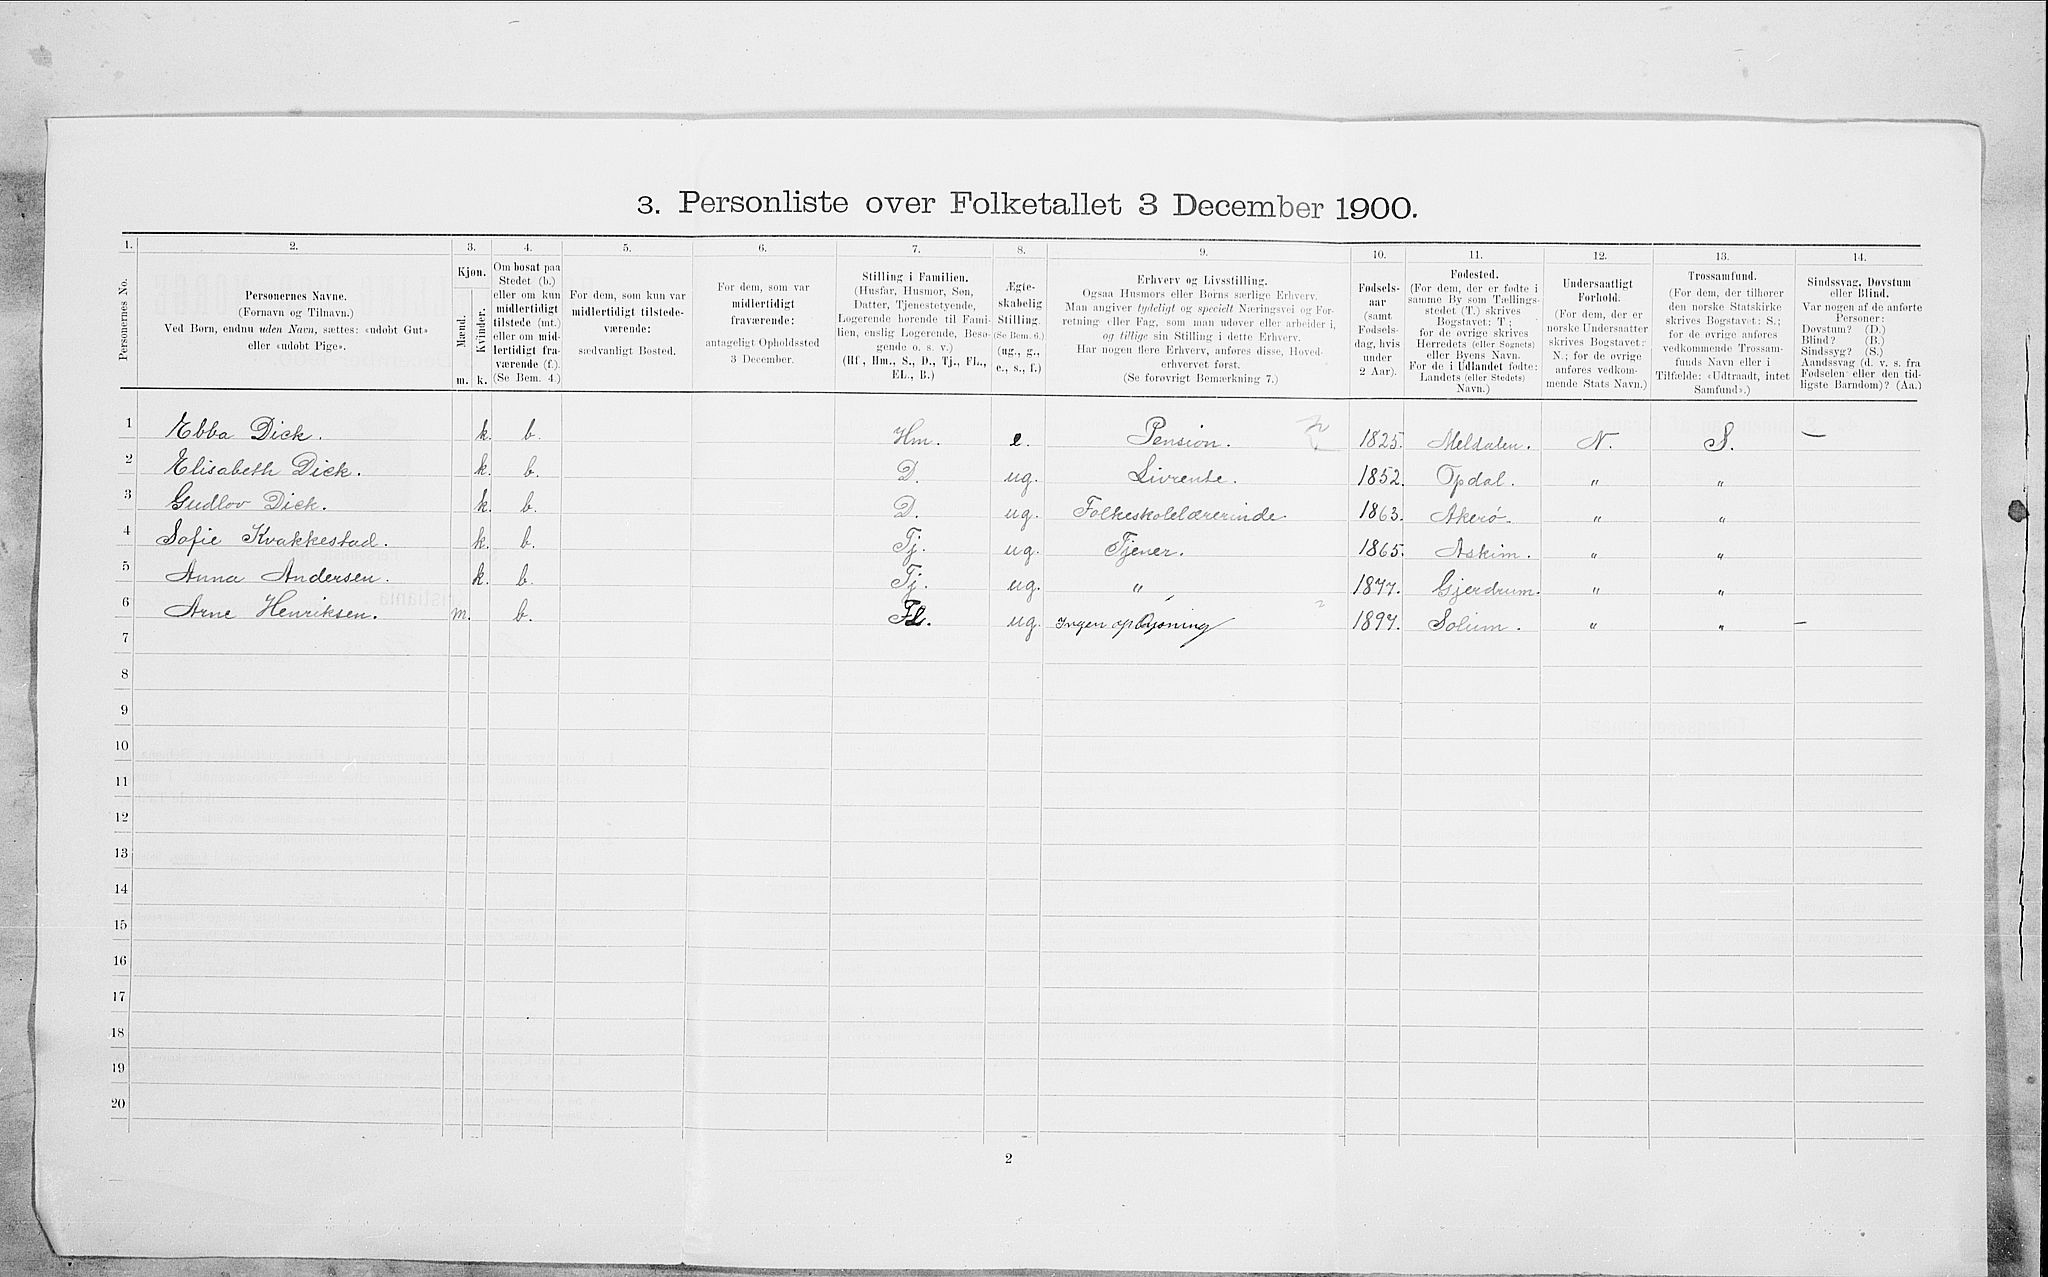 3. Personliste over Folketallet 3 December 1900.
1. 2. 3. 4. 5. 6. 7. 8. 9. 10. 11. 12. 13. 14.
Personernes No.
Personernes Navne.
(Fornavn og Tilnavn.)
Ved Børn, endnu uden Navn, sættes: «udøbt Gut»
eller «udøbt Pige».
Kjøn.
Mænd.
Kvinder.
m. k.
Om bosat paa
Stedet (b.)
eller om kun
midlertidigt
tilstede (mt.)
eller om mid-
lertidigt fra-
værende (f.)
(Se Bem. 4.)
For dem, som kun var
midlertidigt tilstede-
værende:
sædvanligt Bosted.
For dem, som var
midlertidigt
fraværende:
antageligt Opholdssted
3 December.
Stilling i Familien.
(Husfar, Husmor, Søn,
Datter, Tjenestetyende,
Logerende hørende til Fami-
lien, enslig Logerende, Besø-
gende o. s. v.)
(Hf, Hm., S., D., Tj., FL.,
EL., B.)
Ægte-
skabelig
Stilling.
(Se Bem. 6.)
(ug., g.,
e., s., f.)
Erhverv og Livsstilling.
Ogsaa Husmors eller Børns særlige Erhverv.
Man angiver tydeligt og specielt Næringsvei og For-
retning eller Fag, som man udøver eller arbeider i,
og tillige sin Stilling i dette Erhverv.
Har nogen flere Erhverv, anføres disse, Hoved-
erhvervet først.
(Se forøvrigt Bemærkning 7.)
Fødsels-
aar
(samt
Fødsels-
dag, hvis
under
2 Aar).
Fødested.
(For dem, der er fødte i
samme By som Tællings-
stedet (T.) skrives
Bogstavet: T;
for de øvrige skrives
Herredets (eller Sognets)
eller Byens Navn.
For de i Udlandet fødte:
Landets (eller Stedets)
Navn.)
Undersaatligt
Forhold.
(For dem, der er
norske Undersaatter
skrives Bogstavet:
N.; for de øvrige
anføres vedkom-
mende Stats Navn.)
Trossamfund.
(For dem, der tilhører
den norske Statskirke
skrives Bogstavet: S.;
for de øvrige anføres
vedkommende Trossam-
funds Navn eller i
Tilfælde: «Udtraadt, intet
Samfund».)
Sindssvag, Døvstum
eller Blind.
Var nogen af de anførte
Personer:
Døvstum? (D.)
Blind? (B.)
Sindssyg? (S.)
Aandssvag (d. v. s. fra
Fødselen eller den tid-
ligste Barndom)? (Aa.)
1 Ebba Dick. k. b. Hm. e. Pension. 1825. Meldalen. N. S. —
2 Elisabeth Dick. k. b. D. ug. Livrente. 1852. Opdal. " "
3 Gudlov Dick. k. b. D. ug. Folkeskolelærerinde 1863. Akerø. " "
4 Sofie Kvakkestad. k. b. Tj. ug. Tjener. 1865. Askim. " "
5 Anna Andersen. k. b. Tj. ug. " 1877. Gjerdrum. " "
6 Arne Henriksen. m. b. FL. ug. Ingen oplysning 1897. Solum. " " —
7
8
9
10
11
12
13
14
15
16
17
18
19
20
2